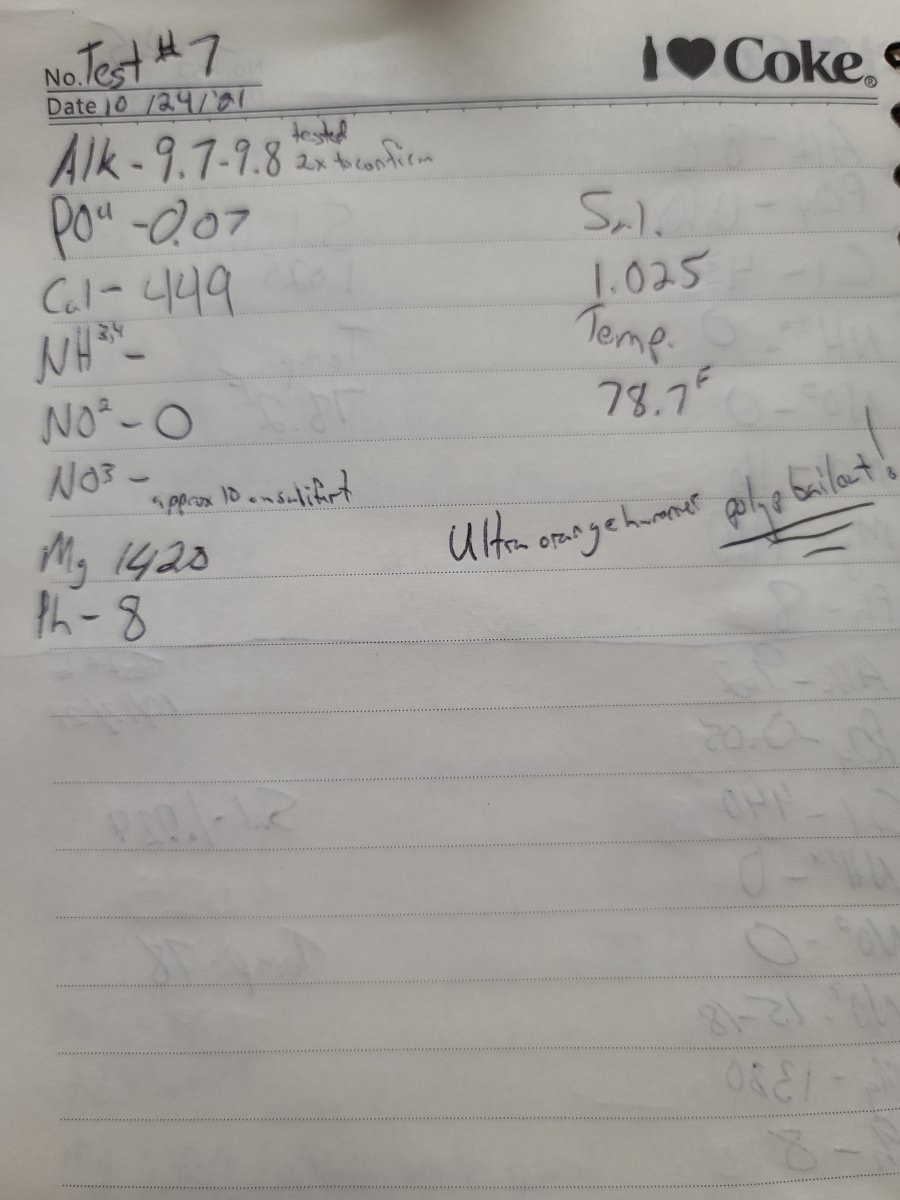 No. Test #7
I ♥ Coke®
Date 10 /24/'21
Alk - 9.7-9.8 tested 2x to confirm
PO⁴ - 0.07
Sal.
Cal - 449
1.025
NH³,⁴ -
Temp.
78.7F
NO² - 0
NO³ - approx 10 on salifert
Ultra orange hammer polyp bailout!
Mg 1420
Ph - 8